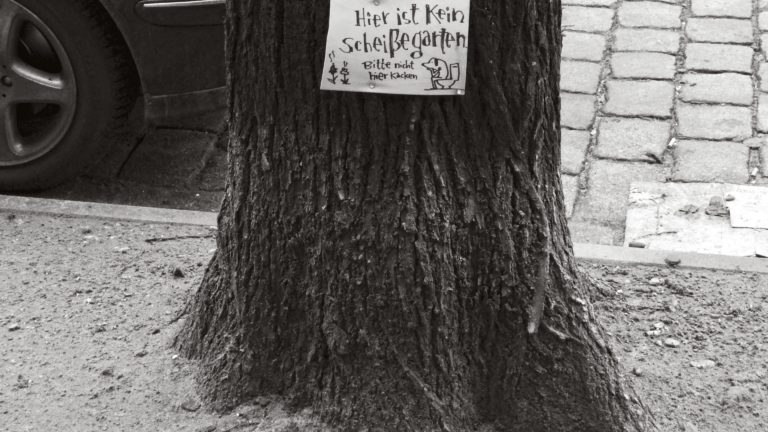 Hier ist Kein
Scheißegarten
Bitte nicht
hier Kacken